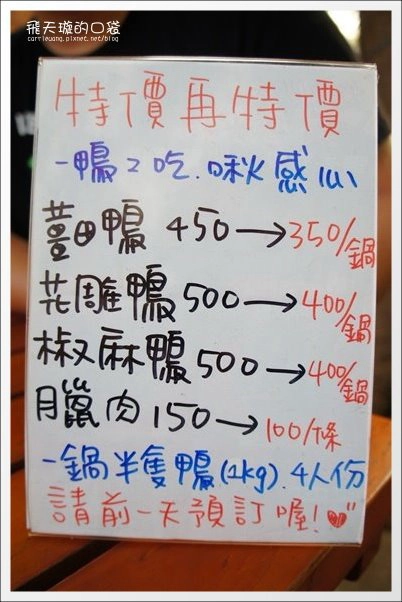 飛天璇的口袋
carrieuang.pixnet.net/blog
特價再特價
一鴨2吃.啾感心
薑母鴨 450→350/鍋
花雕鴨 500→400/鍋
椒麻鴨 500→400/鍋
臘肉 150→100/條
一鍋半隻鴨(1kg).4人份
請前一天預訂喔!